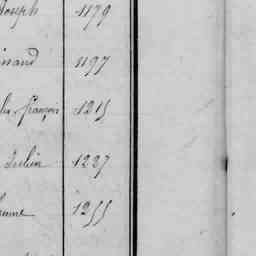 Joseph 1179
inand 1197
françois 1215
Julien 1237
1255